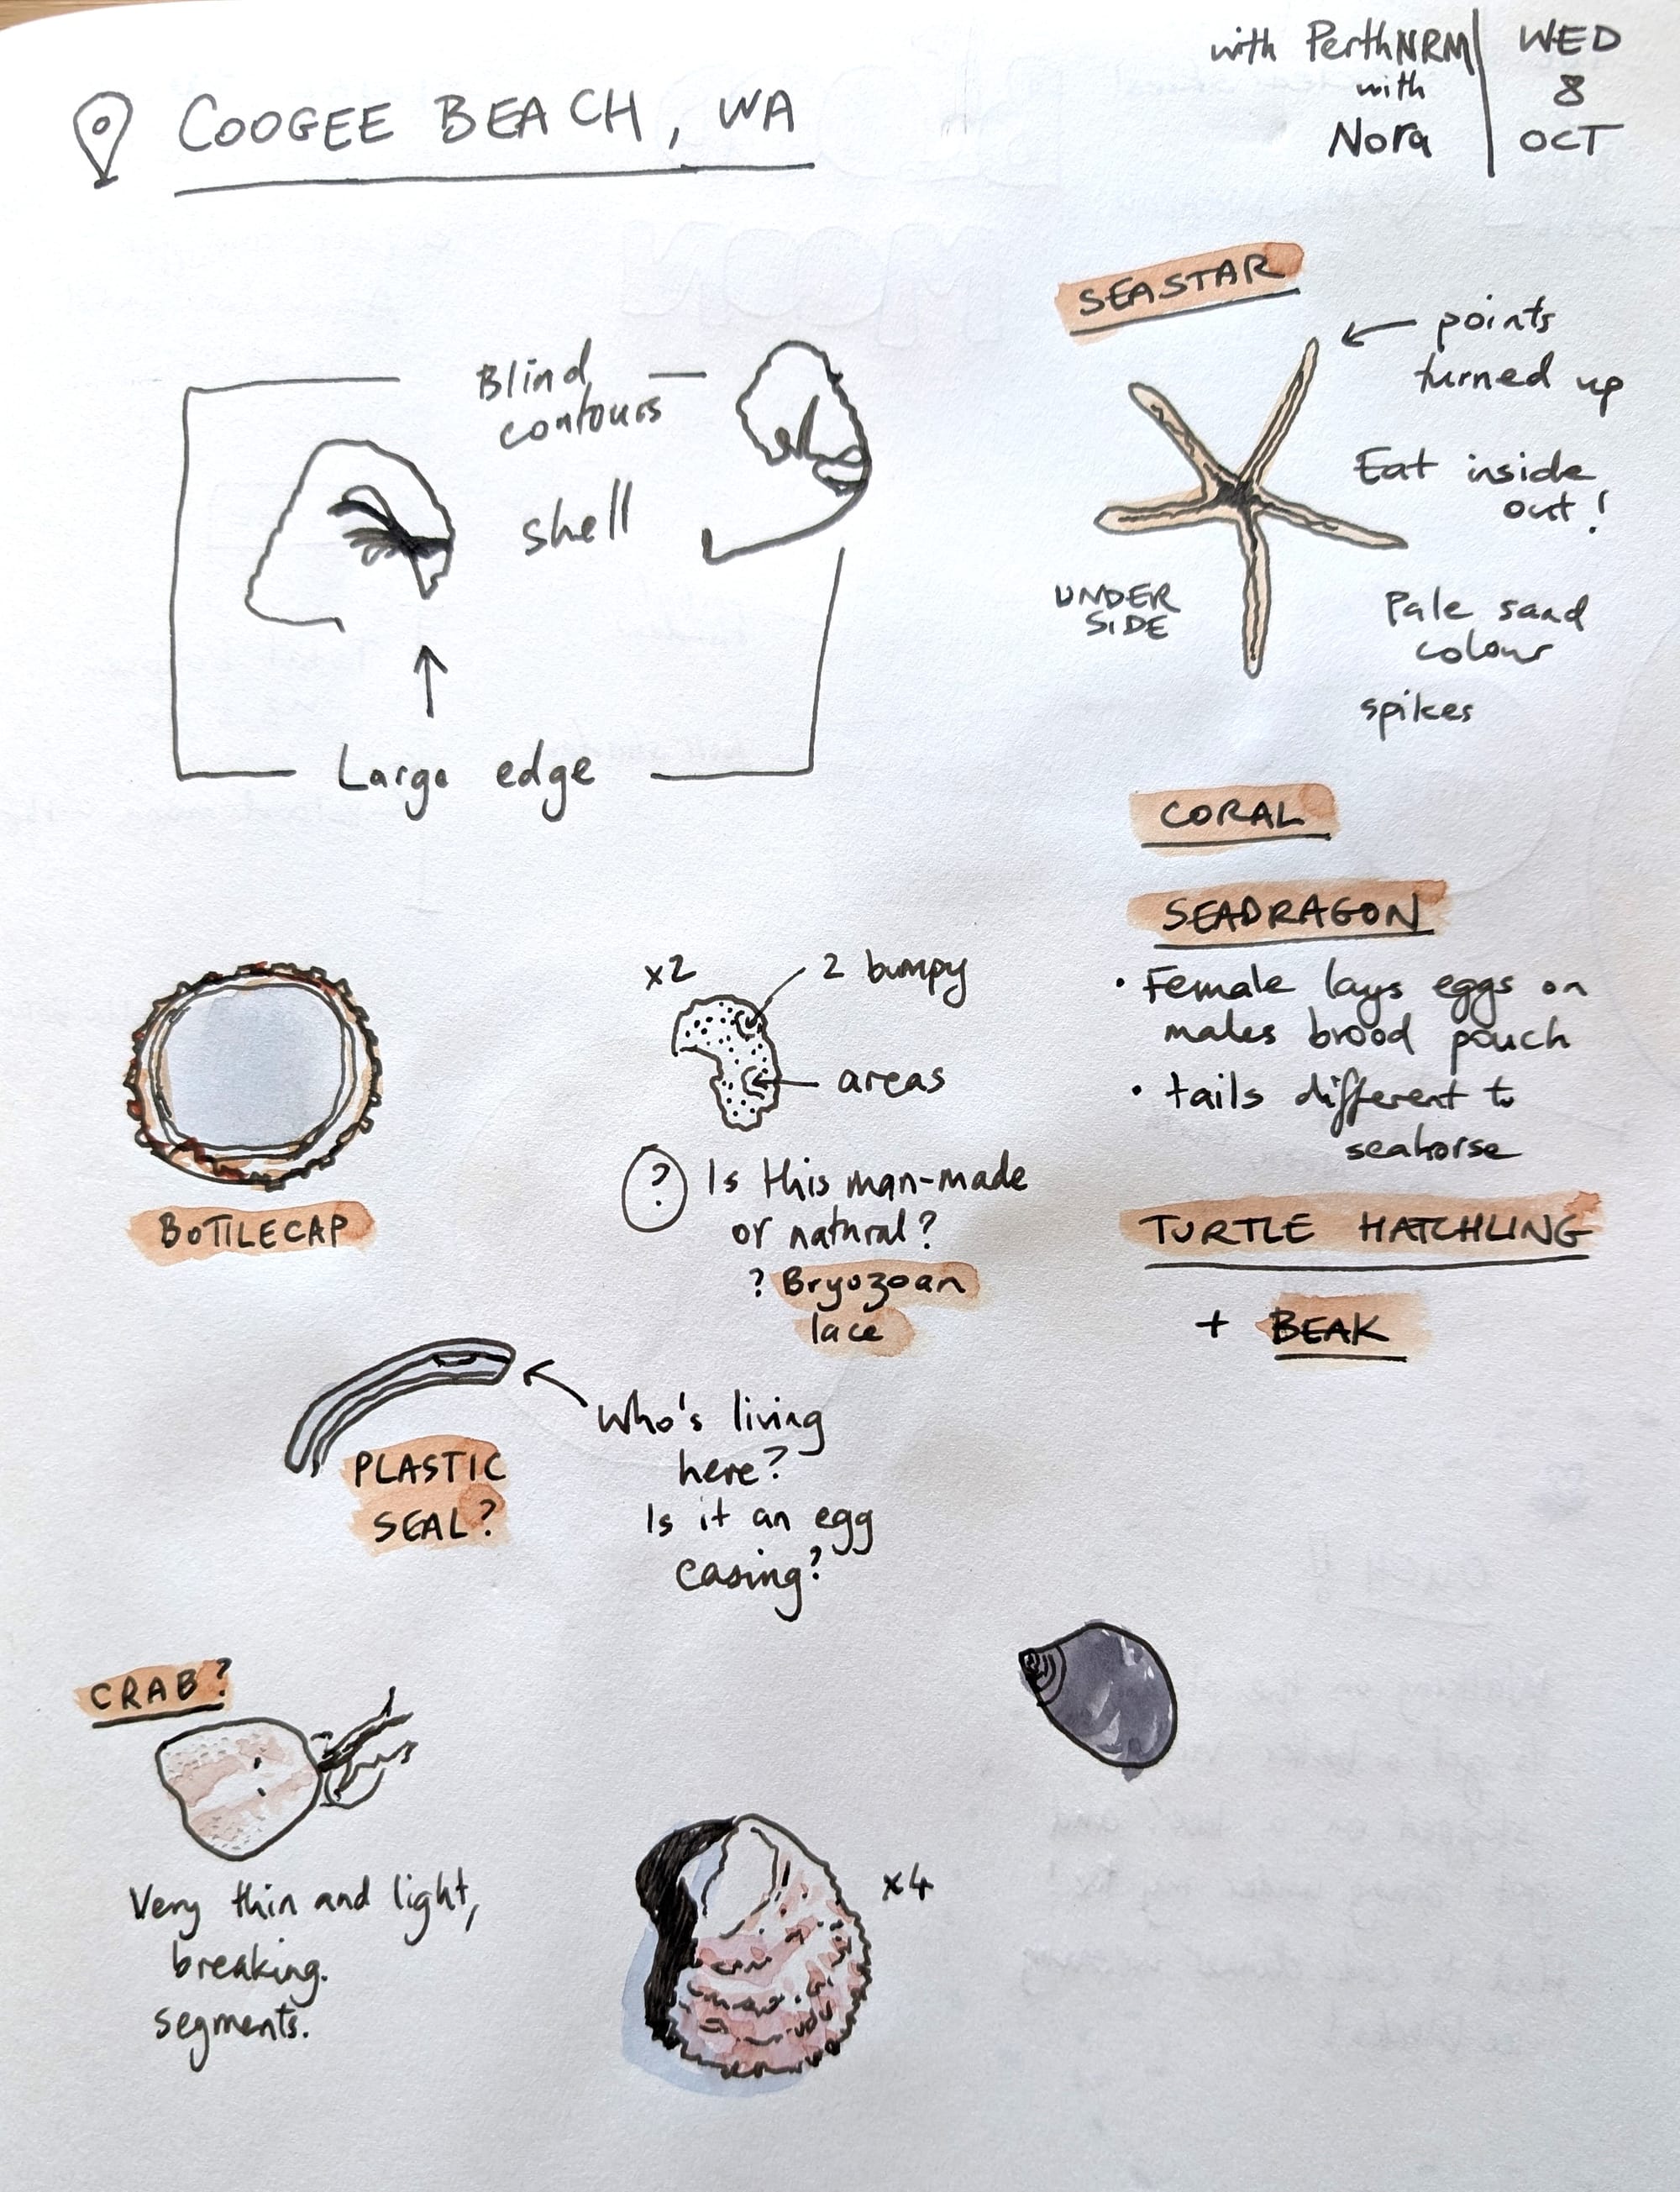 with PerthNRM
with
Nora
WED
8
OCT
COOGEE BEACH, WA
SEASTAR
points
turned up
Eat inside
out!
UNDER
SIDE
Pale sand
colour
spikes
Blind
contours
shell
Large edge
CORAL
SEADRAGON
• Female lays eggs on
males brood pouch
• tails different to
seahorse
TURTLE HATCHLING
+ BEAK
BOTTLECAP
x2
2 bumpy
areas
? Is this man-made
or natural?
? Bryozoan
lace
PLASTIC
SEAL?
Who's living
here?
Is it an egg
casing?
CRAB?
Very thin and light,
breaking.
segments.
x4